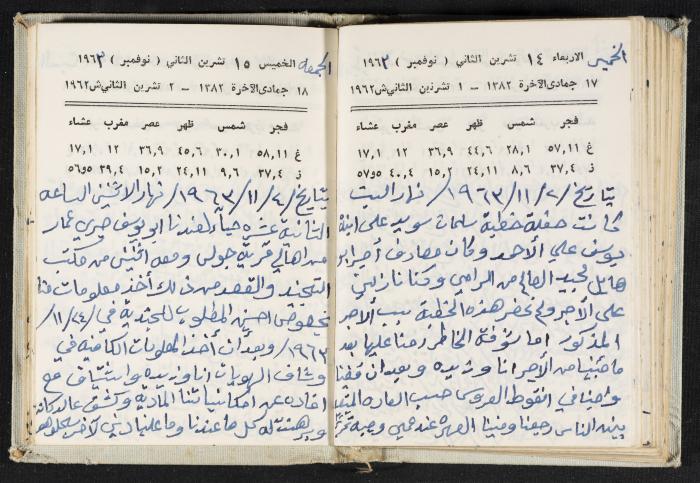 الخميس
الاربعاء ١٤ تشرين الثاني ( نوفمبر ) ١٩٦٣
١٧ جمادى الآخرة ١٣٨٢ – ١ تشرين الثاني ش ١٩٦٢
فجر شمس ظهر عصر مغرب عشاء
غ ٥٧,١١ ٢٨,١ ٤٤,٦ ٣٦,٩ ١٢ ١٧,١
ز ٣٧,٤ ٨,٦ ٢٤,١١ ١٥,٢ ٤٠,٤ ٥٧و٥
بتاريخ ٢/١١/١٩٦٣/ نهار السبت
كانت حفلة خطبة سلمان سويد على ابنة
يوسف علي الأحمد وكان مصادف أجر ابو
هايل نجيب الصالح من الرامي وكنا نازلين
على الأجر ولم نحضر هذه الخطبة بسبب الأجر
المذكور اما شوفة الخاطر رحنا عليها بعد
ما جينا من الأجر انا وزيده وبعد ان قفنا
واجبنا في انقوط العروس حسب العاده المتبعة
بين الناس رجعنا
الجمعه
الخميس ١٥ تشرين الثاني ( نوفمبر ) ١٩٦٣
١٨ جمادى الآخرة ١٣٨٢ – ٢ تشرين الثاني ش ١٩٦٢
فجر شمس ظهر عصر مغرب عشاء
غ ٥٨,١١ ٣٠,١ ٤٥,٦ ٣٦,٩ ١٢ ١٧,١
ز ٣٧,٤ ٩,٦ ٢٤,١١ ١٥,٢ ٣٩,٤ ٥٦و٥
بتاريخ /٤/١١/١٩٦٣/ نهار الاثنين الساعه
الثانية عشره جاء لعندنا ابو يوسف خيري عمار
من اهالي قرية جولس ومعه اثنين من مكتب
التجنيد والقصد من ذلك أخذ معلومات منا
بخصوص المطلوب للجندية في /٢٤/١١/
١٩٦٣/ وبعد ان أخذ المعلومات الكافية في
وشاف الهويات انا وزيده واستيثاق مع
افاده عن امكانياتنا المادية وكشف عالدكانه
وبرهنت له كل ما عندنا وما علينا دين لآخر